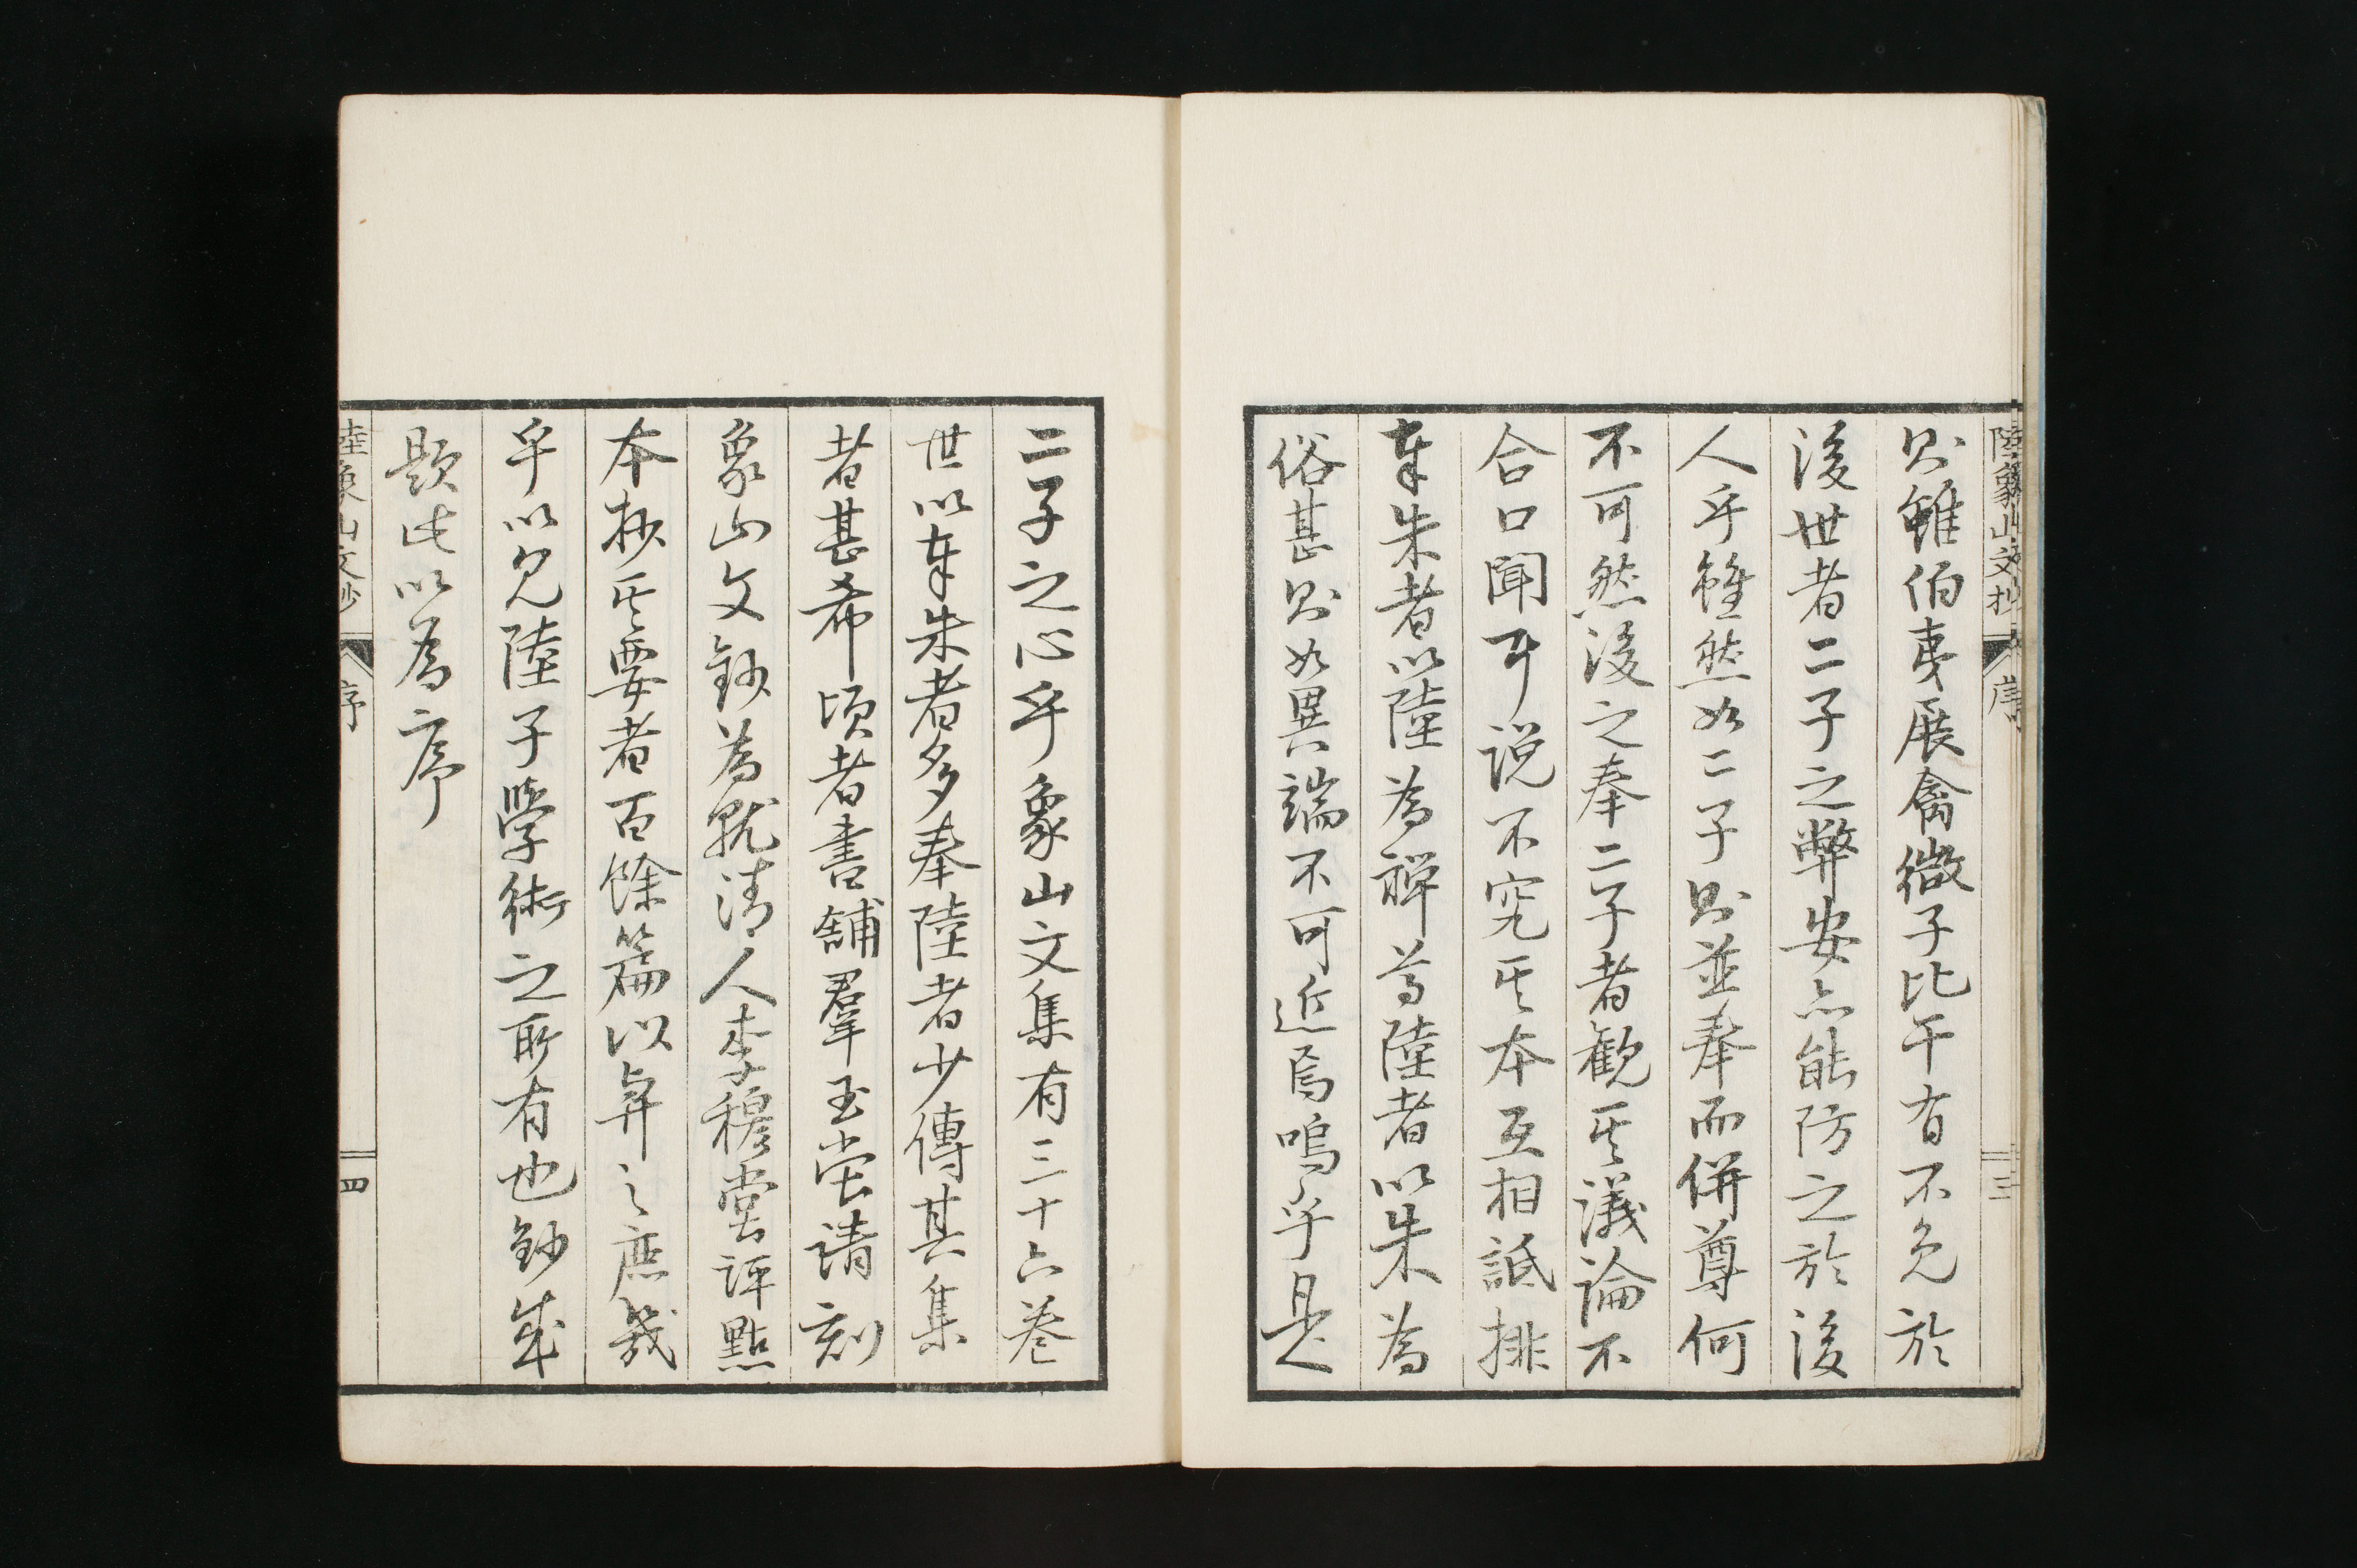 陸象山文抄 序 三
則雖伯夷展禽微子比干有不免於
後世者二子之弊安亦能防之於後
人乎雖然如二子則並奉而併尊何
不可然後之奉二子者観其議論不
合口聞耳説不究其本互相詆排
奉朱者以陸為禅尊陸者以朱為
俗甚則如異端不可近焉嗚乎是
二子之心乎象山文集有三十六巻
世以奉朱者多奉陸者少傳其集
者甚希頃者書舗羣玉堂請刻
象山文鈔為就清人李穆堂評點
本抄其要者百餘篇以弁之庶幾
乎以見陸子學術之所有也鈔成
題此以為序
陸象山文鈔 序 四